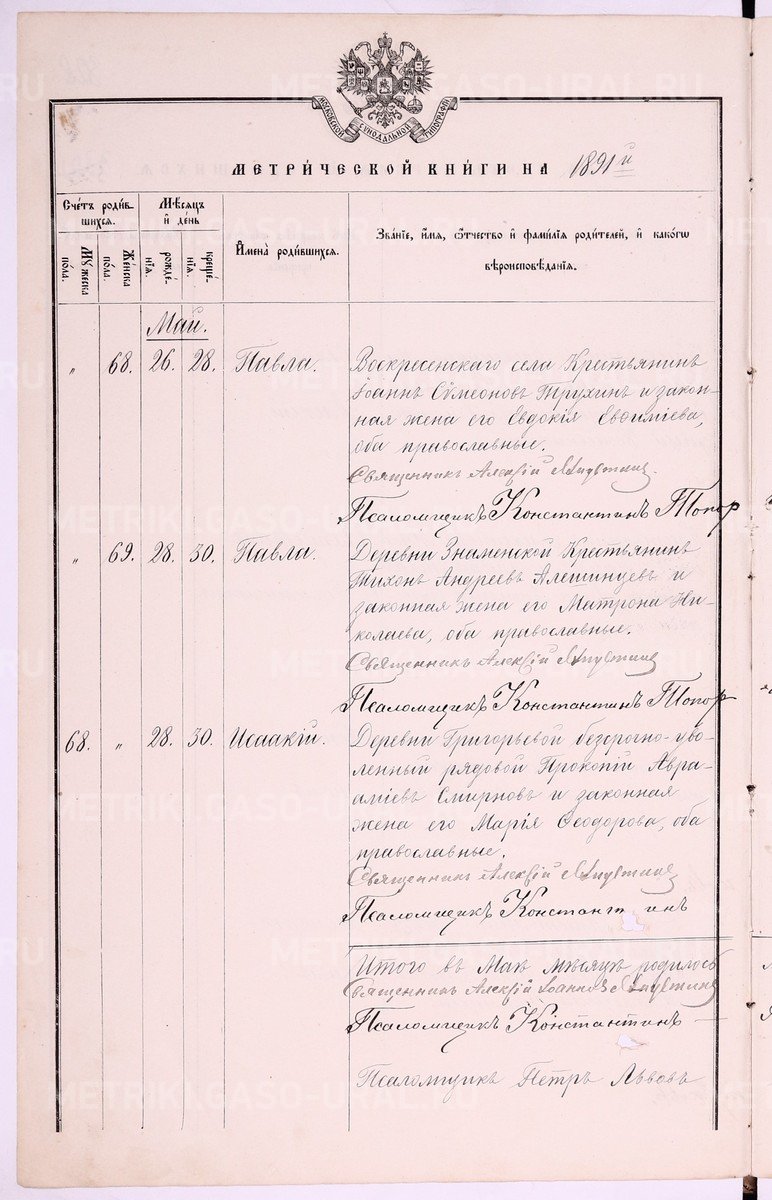 МОСКОВСКОЙ СѴНОДАЛЬНОЙ ТИПОГРАФІИ
МЕТРИ́ЧЕСКОЙ КНИ́ГИ НА 1891й
Сче́тъ роди́в-
шихся.
Мꙋжеска
по́ла.
Же́нска
по́ла.
Мѣ́сяцъ
и҆ де́нь
рожде́-
нїѧ.
креще́-
нїѧ.
И҆мена̀ роди́вшихсѧ.
Зва́нїе, и҆́мѧ, ѻ҆́тчество и҆ фамилїѧ роди́телей, и҆ како́гѡ
вѣроисповѣ́данїѧ.
Май.
„ 68. 26. 28. Павла.
Воскресенскаго села Крестьянинъ
Іоаннъ Сѵмеоновъ Трухинъ и закон-
ная жена его Евдокія Евѳиміева,
оба православные.
Священникъ Алексій
Псаломщикъ Константинъ Топор
„ 69. 28. 30. Павла.
Деревни Знаменской Крестьянинъ
Тихонъ Андреевъ Алешинцевъ и
законная жена его Матрона Ни-
колаева, оба православные.
Священникъ Алексій
Псаломщикъ Константинъ Топор
68. „ 28. 30. Исаакій.
Деревни Григорьевой безсрочно-уво-
ленный рядовой Прокопій Авра-
аміевъ Смирновъ и законная
жена его Марія Ѳеодорова, оба
православные.
Священникъ Алексій
Псаломщикъ Константинъ
Итого въ Маѣ мѣсяцѣ родилось
Священникъ Алексій Іоанновъ
Псаломщикъ Константинъ
Псаломщикъ Петръ Львовъ
METRIKI.GASO-URAL.RU